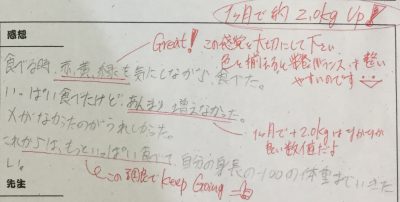 1ヶ月で約2.0kg up!
感想
Great! この感覚を大切にして下さい
色を揃えると栄養バランスは整い
やすいのです
食べる時、赤、黄、緑を気にしながら食べた。
いっぱい食べたけど、あんまり増えなかった。
×がなかったのがうれしかった。
1ヶ月で+2.0kgはなかなか
良い数値だよ
これからは、もっといっぱい食べて、自分の身長の-100の体重までいきた
い。
先生
この調子でkeep Going